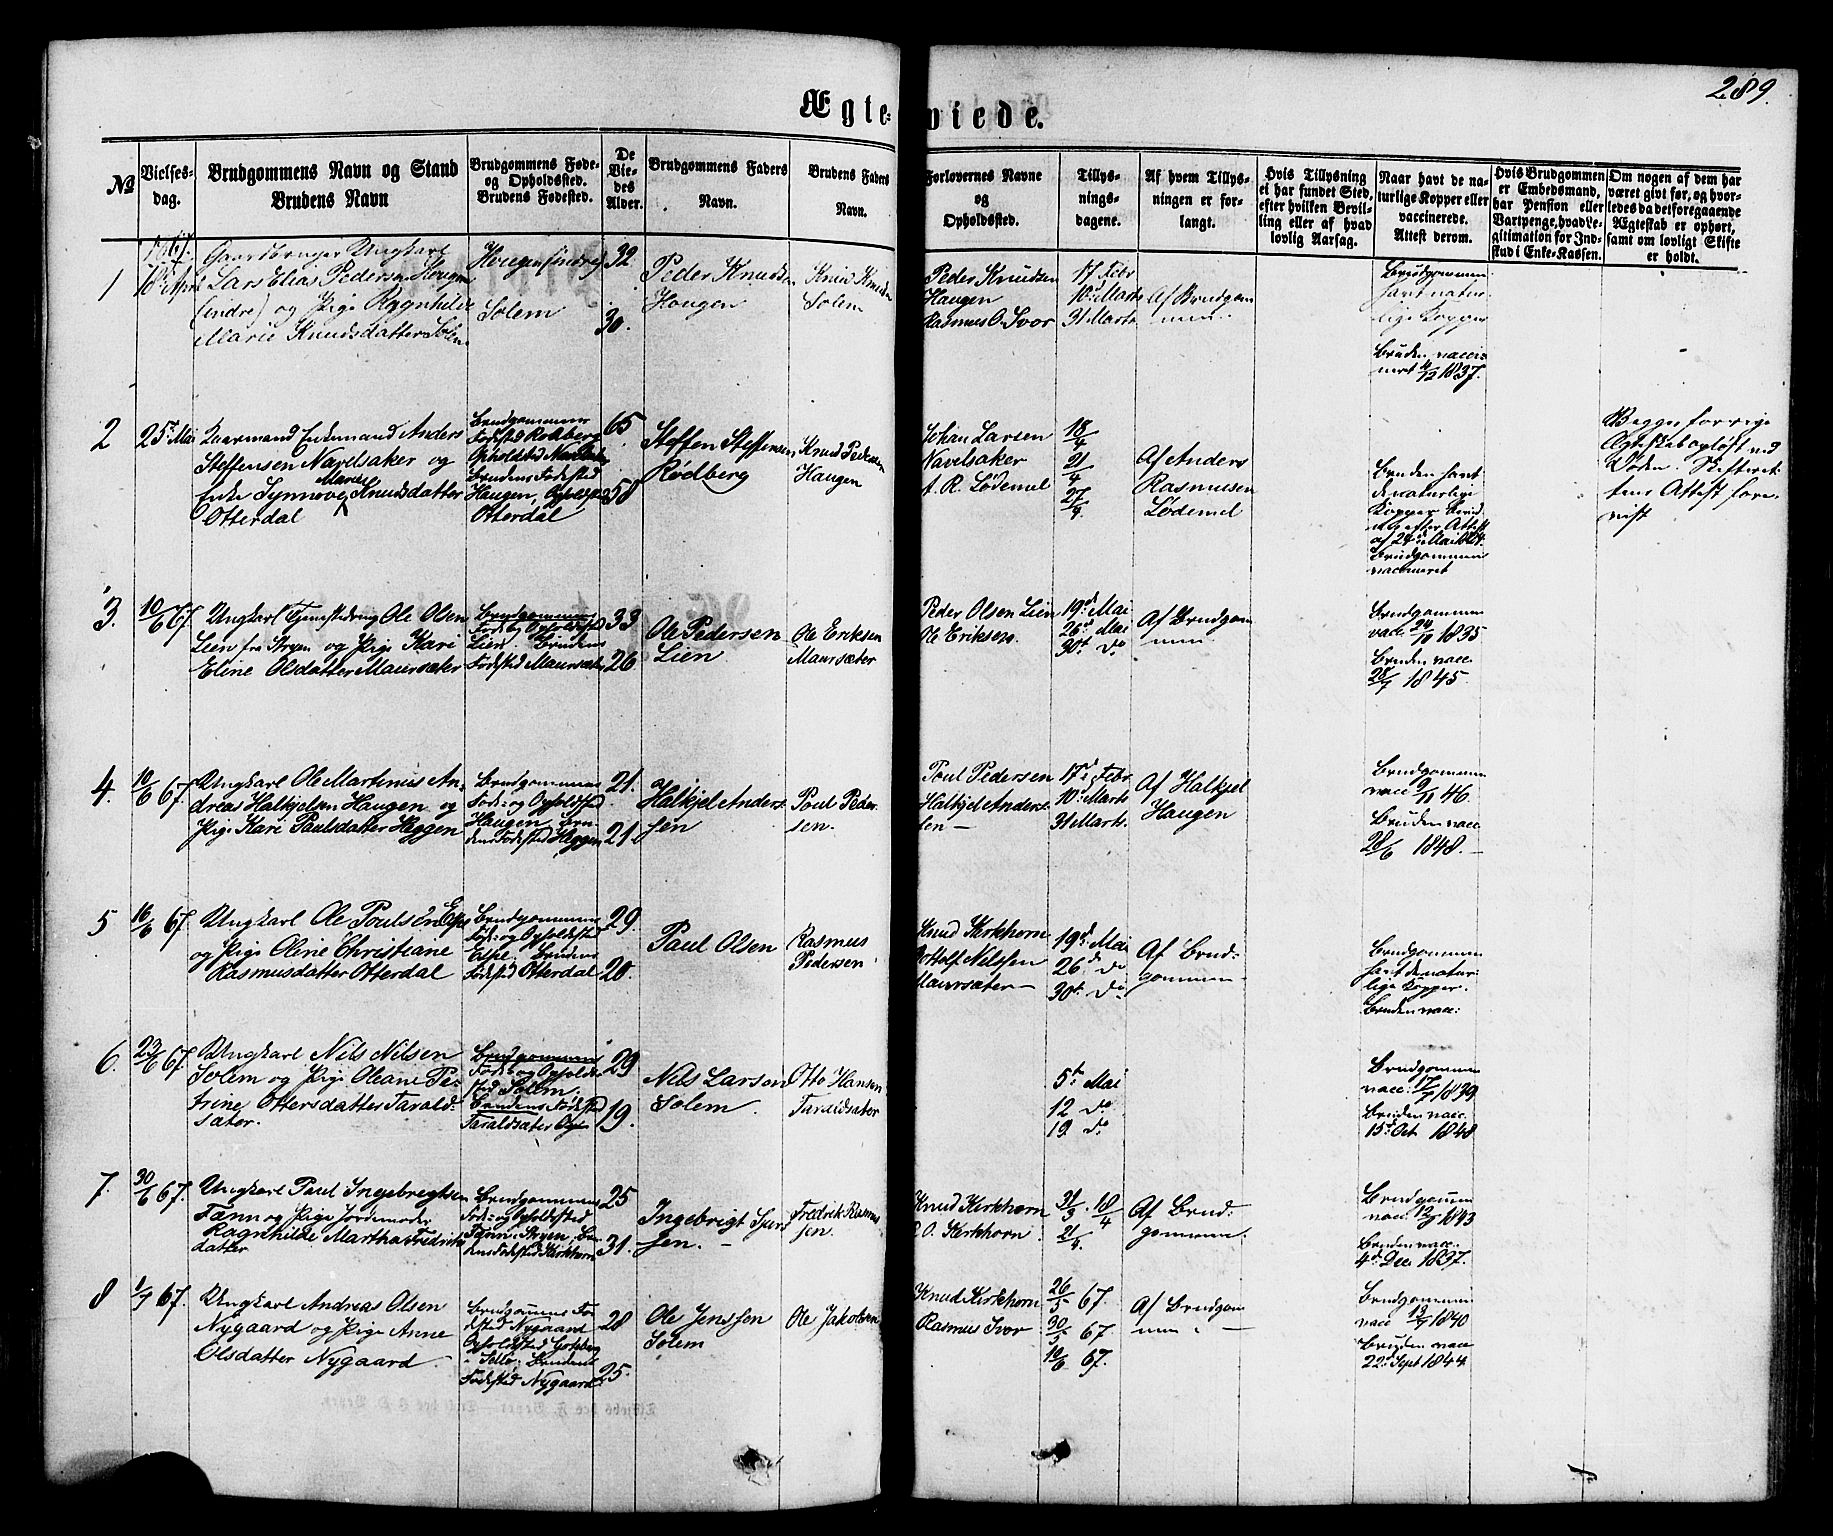 289.
Ægteviede.
No
Vielses-
dag.
Brudgommens Navn og Stand
Brudens Navn
Brudgommens Føde-
og Opholdssted.
Brudens Fødested.
De
Vie-
des
Alder.
Brudgommens Faders
Navn.
Brudens Faders
Navn.
Forlovernes Navne
og
Opholdssted.
Tillys-
nings-
dagene.
Af hvem Tillys-
ningen er for-
langt.
Hvis Tillysning
ei har fundet Sted,
efter hvilken Bevil-
ling eller af hvad
lovlig Aarsag.
Naar havt de na-
turlige Kopper eller
vaccinerede.
Attest derom.
Hvis Brudgommen
er Embedsmand,
har Pension eller
Vartpenge, hvad Le-
gitimation for Ind-
skud i Enke-Kassen.
Om nogen af dem har
været givt før, og hvor-
ledes da det foregaaende
Ægteskab er ophørt,
samt om lovligt Skifte
er holdt.
1
1867.
Gaardbruger Ungkarl
Lars Elias Pedersen Haugen
(indre) og Pige Ragnhilde
Marie Knudsdatter Solem
Haugen (indre)
Solem
32
30.
Peder Knudsen
Haugen
Knud Knudsen
Solem
Peder Knudsen
Haugen
Rasmus O. Svor
17 Febr
10. Marts
31 Marts
Af Brudgom
men
Brudgommen
havt natur-
lige Kopper
Bruden vacci-
nert 4/12 1837.
2
25 Mai
Kaarmand Enkemand Anders
Steffensen Navelsaker og
Enke Synnøve Marie Knudsdatter
Otterdal
Brudgommens
Fødested Rødberg
Opholdssted
Brudens Fødested
Haugen, Opholdsted
Otterdal
65
58
Steffen Steffensen
Rødberg
Knud Pedersen
Haugen
Johan Larsen
Navelsaker
A. R. Lødemel
18/4
21/4
27/4
Af Anders
Rasmusen
Lødemel
Bruden havt
de naturlige
Kopper
efter Attest
af 24d Mai
Brudgommen
vaccineret
Begges forrige
Ægteskab opløst ved
Døden. Skifteret-
tens Attest fore-
vist
3.
10/6 67.
Ungkarl Tjenestedreng Ole Olsen
Lien fra Stryen og Pige Kari
Eline Olsdatter Maursæter
Brudgommens
Føde og Opholdsted
Lien. Brudens
Fødested Maursæter
33
26
Ole Pedersen
Lien
Ole Eriksen
Maursæter
Peder Olsen Lien
Ole Eriksen.
19d Mai
26d Mai
30t do
Af Brudgom
men
Brudgommen
vacc. 24/9 1835
Bruden vacc.
28/7 1845.
4.
10/6 67.
Ungkarl Ole Martinus An-
dreas Halkjelsen Haugen og
Pige Kari Paulsdatter Heggen
Brudgommens
Føde og Opholdsted
Haugen. Bru-
dens Fødested Heggen
21.
21.
Halkjel Anders-
sen
Poul Peder-
sen.
Poul Pedersen
Halkjel Anders-
sen —
17d Febr
10d Marts
31 Marts.
Af Halkjel
Haugen
Brudgommen
vacc 9/11 46.
Bruden vacc
28/6 1848. —
5
16/6 67.
Ungkarl Ole Poulsen Elpe
og Pige Oline Christiane
Rasmusdatter Otterdal
Brudgommens
Føde og Opholdsted
Elpe. Brudens
Fødested Otterdal
29.
20.
Paul Olsen
Rasmus
Pedersen
Knud Kirkhorn
Nilssen
Maursæter —
19d Mai
26d do
30t do
Af Brud-
gommen
Brudgommen
havt de natur-
lige Kopper.
Bruden vacc:
6.
23/6 67.
Ungkarl Nils Nilsen
Solem og Pige Oleane Pe-
trine Ottersdatter Tarald-
sæter.
Brudgommens
Føde og Opholds-
sted Solem.
Brudens Fødested
Taraldsæter
29
19.
Nils Larsen
Solem
Otto Hansen
Taraldsæter
5te Mai
12 do
19 do
Brudgommen
vacc: 17/7 1839
Bruden vacc.
15d Oct 1848
7.
30/6 67.
Ungkarl Paul Ingebregtsen
Tænn og Pige Jordemoder
Ragnhilde Martha Fredriks-
datter
Brudgommens
Føde og Opholdsted
Tænn i Stryen, Bru-
dens Fødested Kirkhorn
25
31.
Ingebrigt Sjurs-
sen. —
Fredrik Rasmus-
sen.
Knud Kirkhorn
P. O. Kirkhorn
31/3. 18/4
21/4.
Af Brud-
gommen.
Brudgommen
vacc 12/9 1843
Bruden vacc.
4d Dec 1837.
8
1/7 67.
Ungkarl Andreas Olsen
Nygaard og Pige Anne
Olsdatter Nygaard
Brudgommens Fø-
dested Nygaard
Opholdsted
Brudens
Fødested Nygaard
28
25.
Ole Jenssen
Solem
Ole Jakobsen
Knud Kirkhorn
Rasmus Svor
26/5 67.
30/5 67.
10/6 67.
Af Brudgom
men. —
Brudgommen
vacc 12/9 1840
Bruden vacc
22d Sept 1844